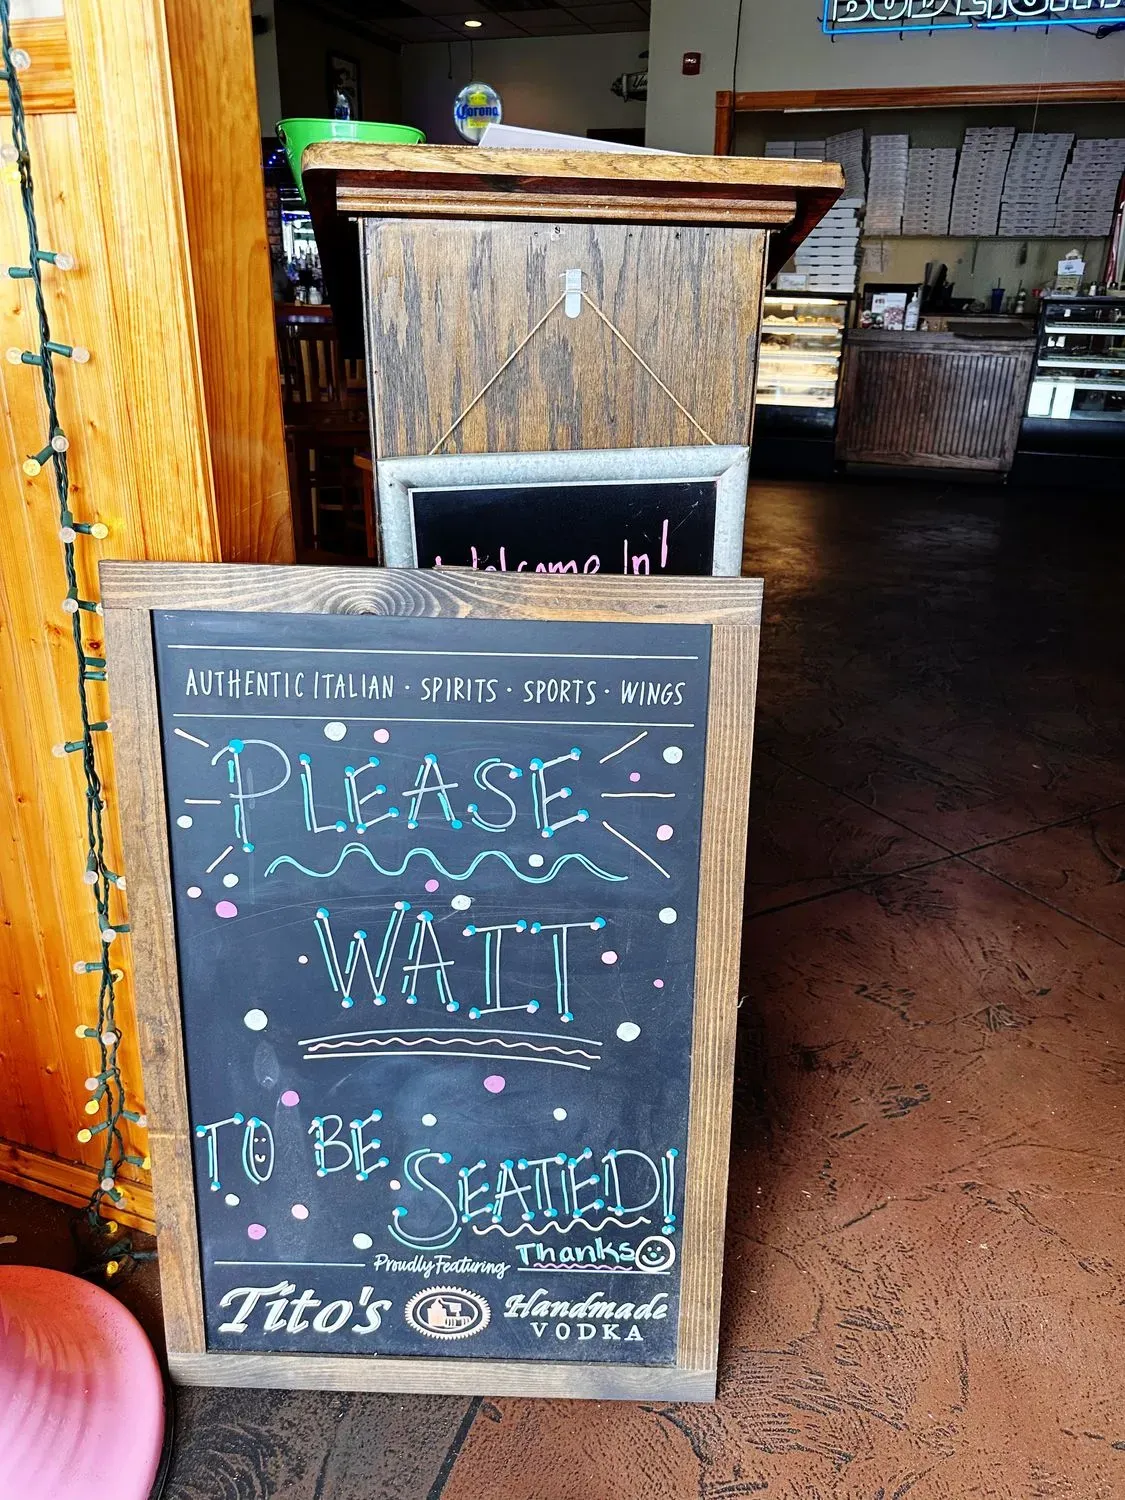 BUD LIGHT
Corona
Extra
Welcome In!
AUTHENTIC ITALIAN · SPIRITS · SPORTS · WINGS
PLEASE
WAIT
TO BE
SEATED!
Thanks
Proudly Featuring
Tito's Handmade
VODKA